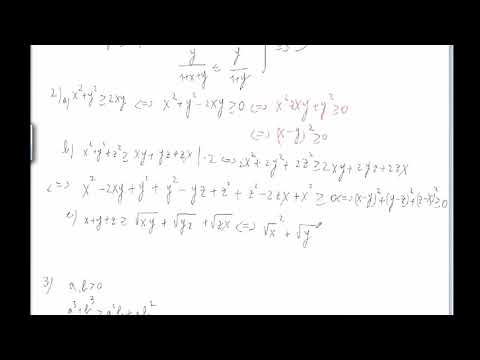 y/(1+x+y) ≤ y/(1+y)
2) a) x²+y² ≥ 2xy ⇔ x²+y²-2xy ≥ 0 ⇔ x²-2xy+y² ≥ 0
⇔ (x-y)² ≥ 0
b) x²+y²+z² ≥ xy+yz+zx |·2 ⇔ 2x²+2y²+2z² ≥ 2xy+2yz+2zx
⇔ x²-2xy+y²+y²-yz+z²+z²-2zx+x² ≥ 0 ⇔ (x-y)²+(y-z)²+(z-x)² ≥ 0
c) x+y+z ≥ √xy+√yz+√zx ⇔ √x²+√y
3) a,b>0
a³+b³ ≥ a²b+ab²